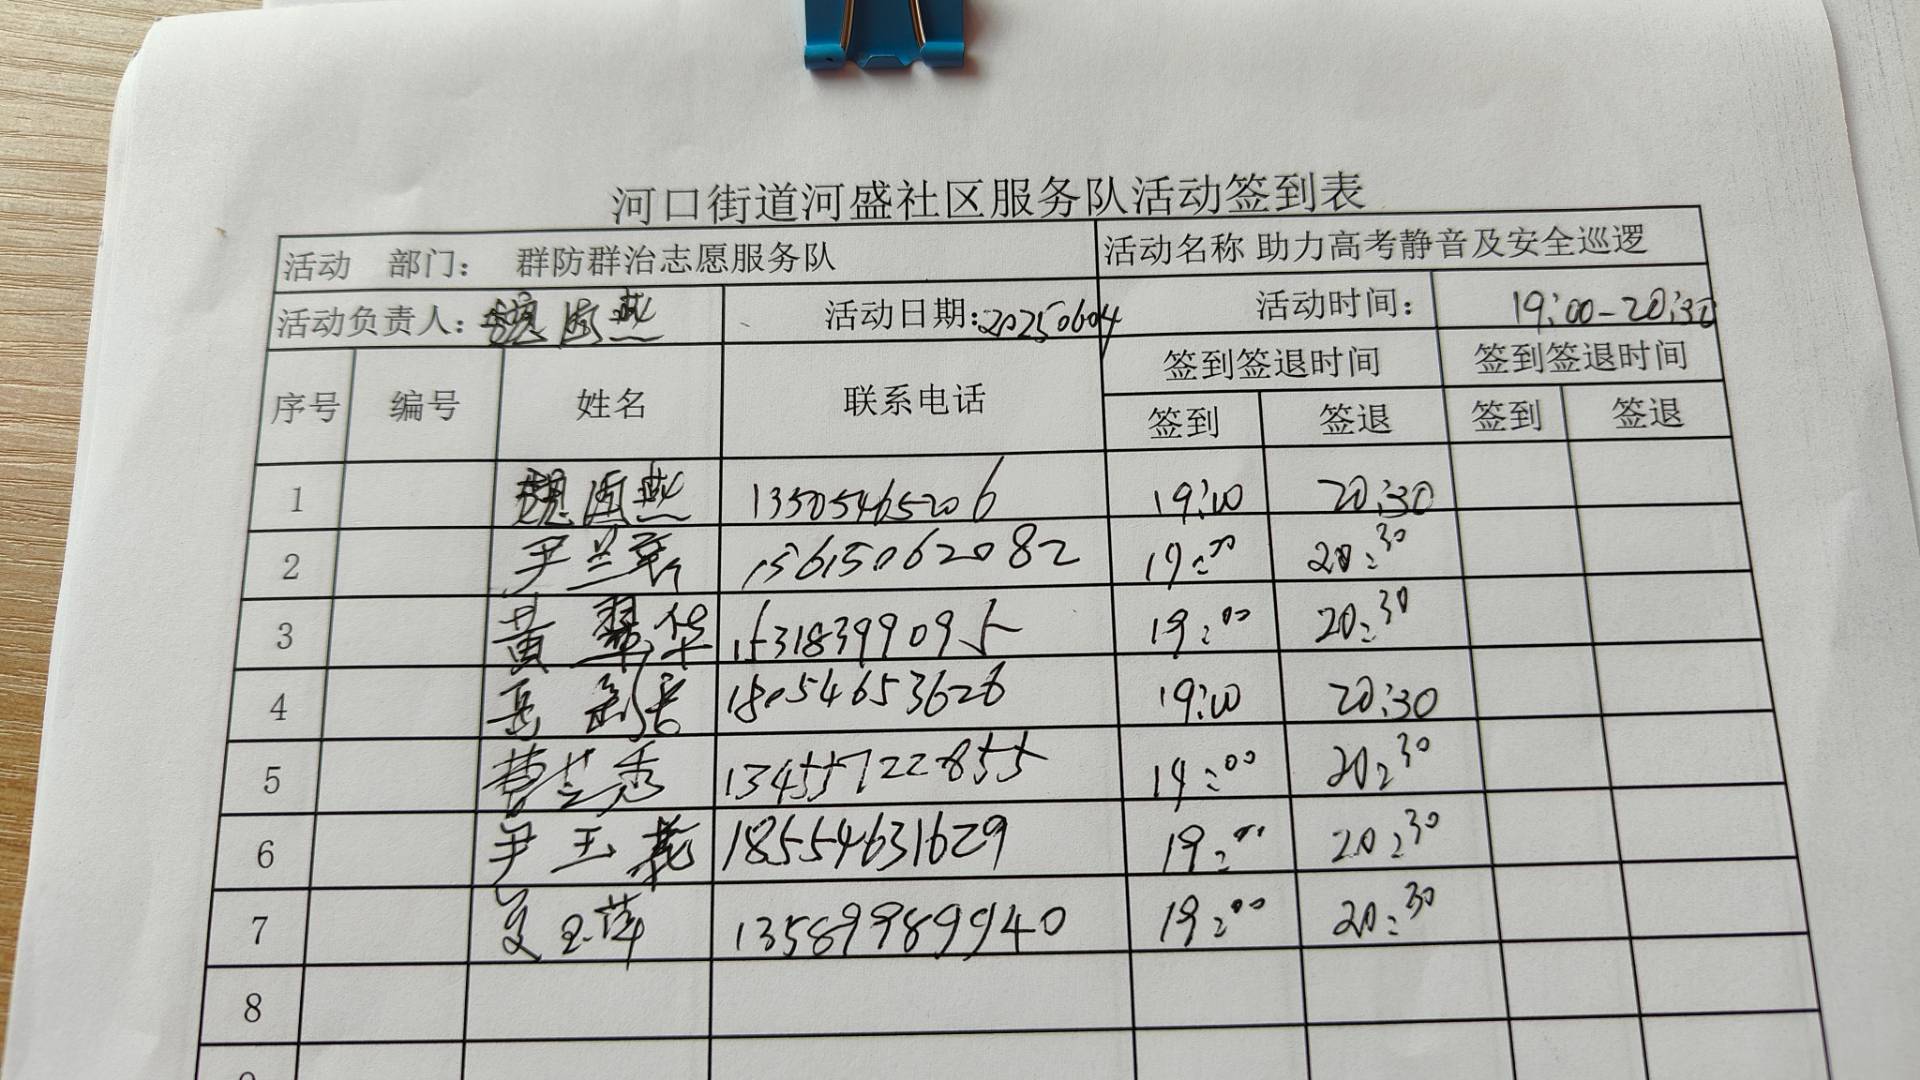 河口街道河盛社区服务队活动签到表
活动 部门： 群防群治志愿服务队 活动名称 助力高考静音及安全巡逻
活动负责人： 活动日期：20250604 活动时间： 19:00-20:30
序号 编号 姓名 联系电话 签到签退时间 签到签退时间
签到 签退 签到 签退
1 13505465206 19:00 20:30
2 尹兰新 15615062082 19:00 20:30
3 黄翠华 15318399095 19:00 20:30
4 18054653626 19:00 20:30
5 曹兰秀 13455722855 19:00 20:30
6 尹玉花 18554631629 19:00 20:30
7 13589989940 19:00 20:30
8